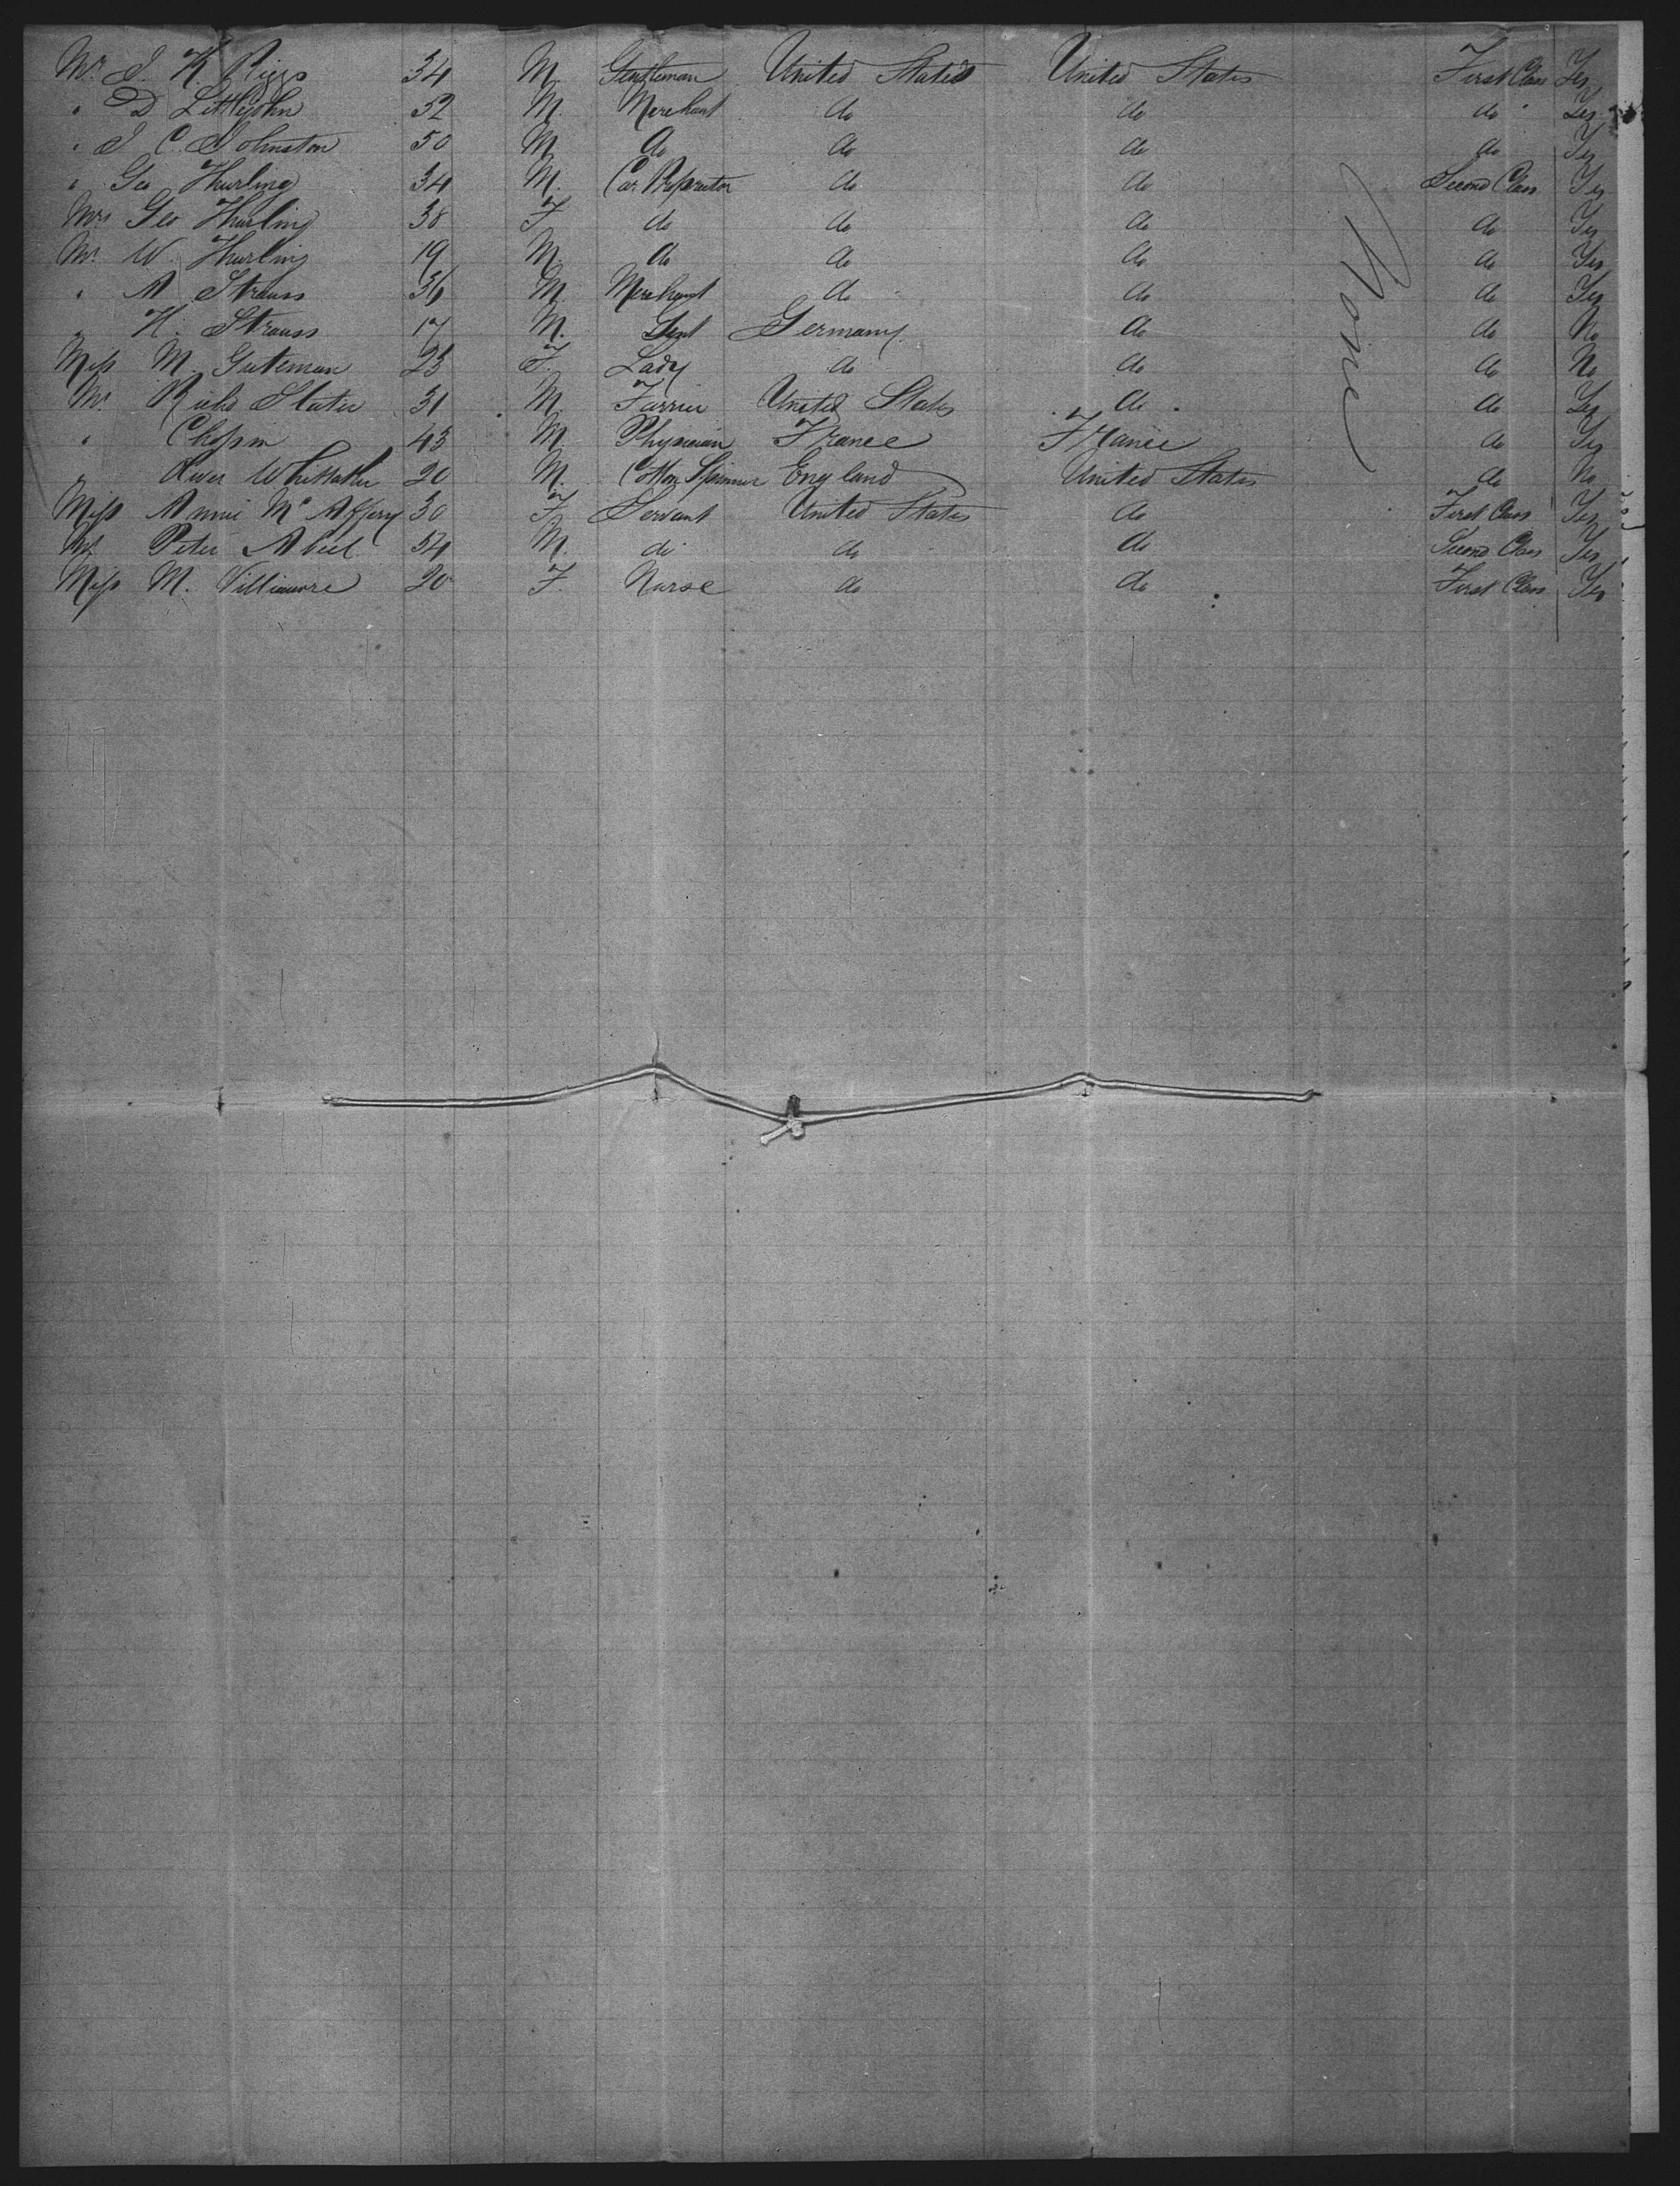 Mr. J. K. Riggs 34 M. Gentleman United States United States First Class Yes
" D Littlejohn 52 M. Merchant do do do Yes
" J C. Johnston 50 M do do do do Yes
" Geo Hurling 34 M. Car Proprietor do do Second Class Yes
Mrs Geo Hurling 38 F do do do do Yes
Mr. W. Hurling 19 M. do do do do Yes
" A Strauss 36 M. Merchant do do do Yes
" H. Strauss 17 M. Gent Germany do do No
Miss M. Guteman 23 F. Lady do do do No
Mr. Richd Slater 31 M. Farrier United States do do Yes
" Chopin 43 M. Physician France France do Yes
" Oliver Whittaker 20 M. Cotton Spinner England United States do No
Miss Annie Mc Affery 30 F. Servant United States do First Class Yes
Mr. Peter Abeel 54 M. do do do Second Class Yes
Miss M. 20 F. Nurse do do First Class Yes
None